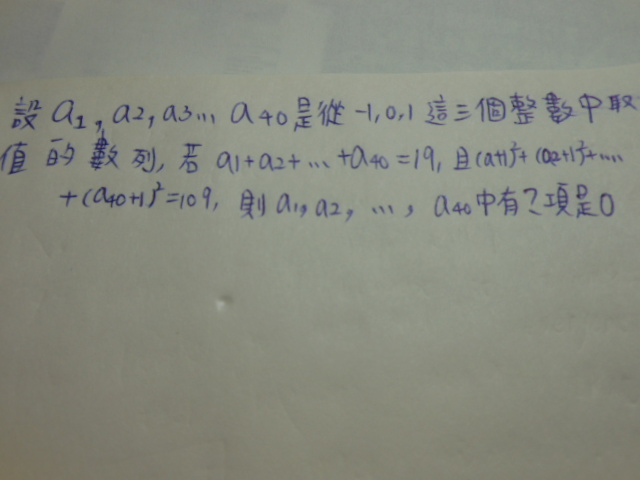 設 a1, a2, a3... a40是從 -1,0,1 這三個整數中取
值的數列, 若 a1+a2+...+a40=19, 且(a1+1)²+(a2+1)²+....
+(a40+1)²=109, 則 a1, a2, ..., a40中有?項是0